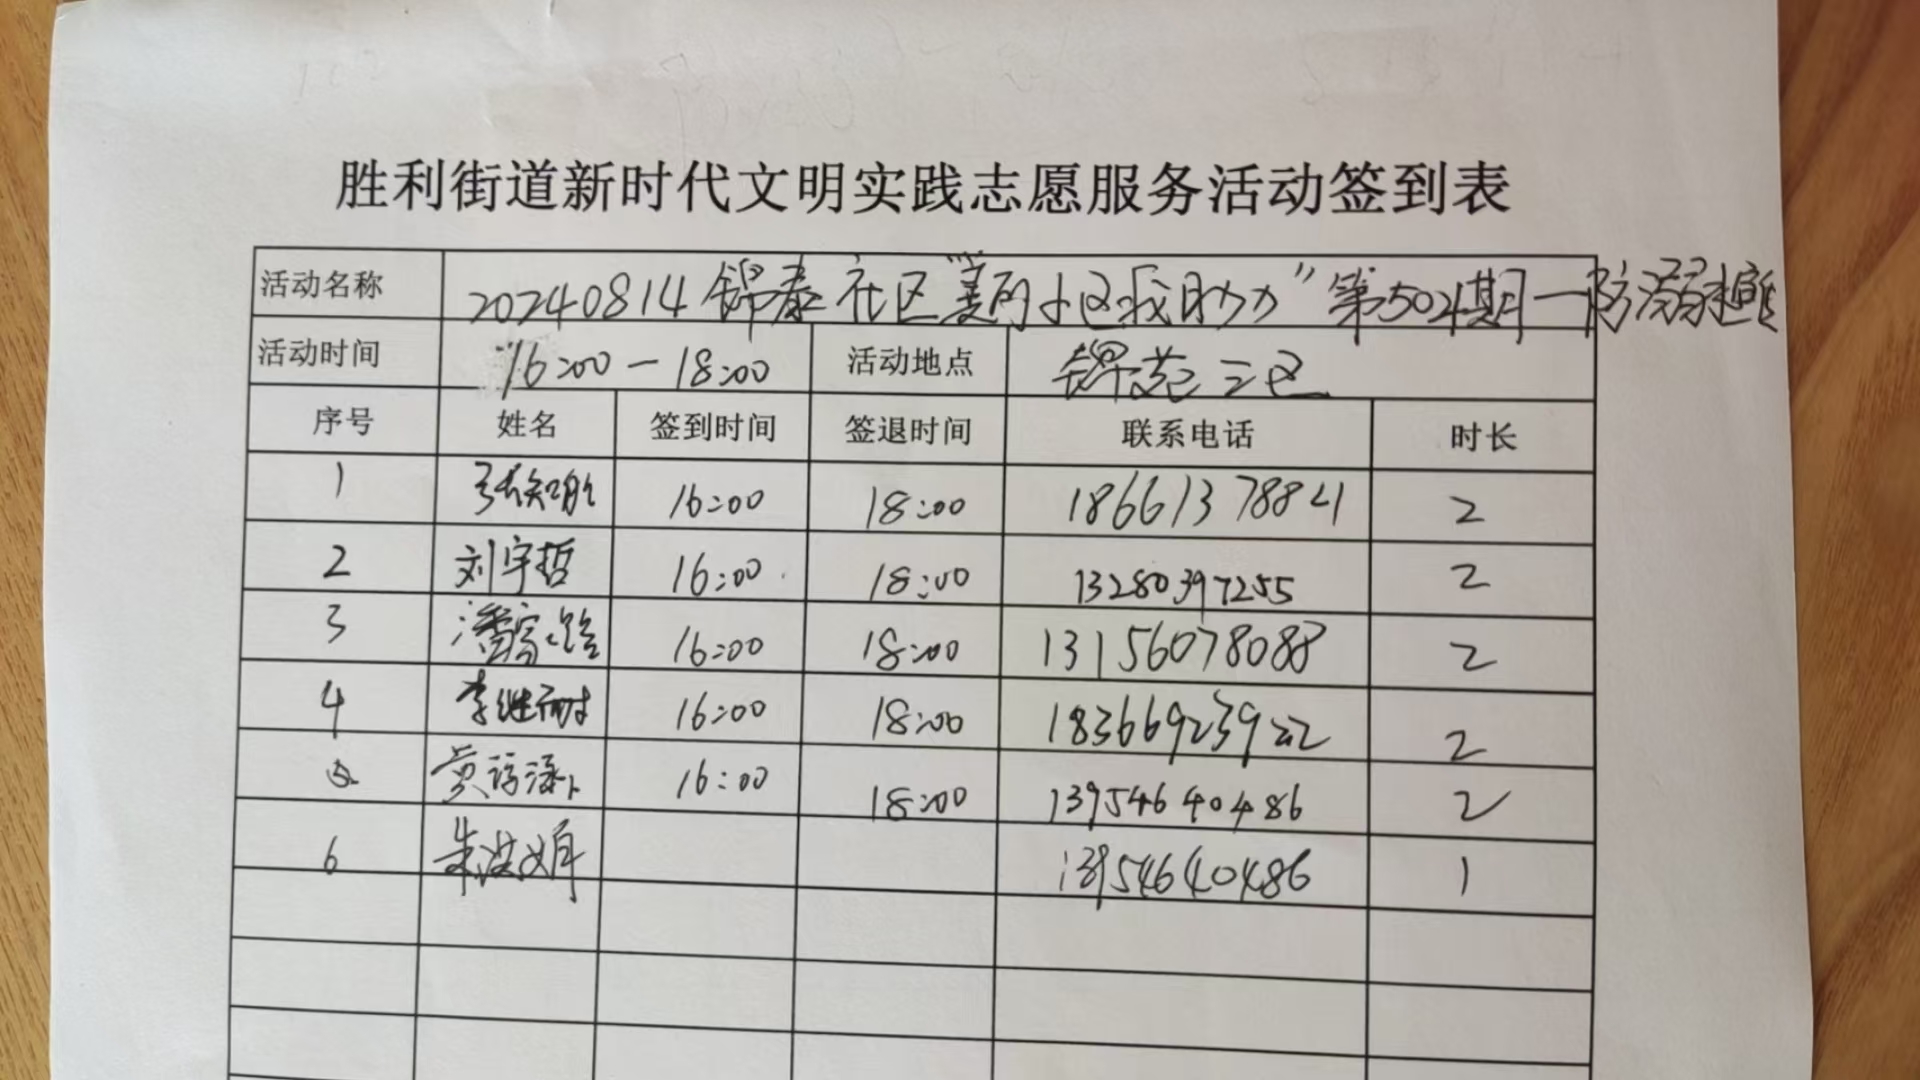 胜利街道新时代文明实践志愿服务活动签到表
活动名称 20240814锦泰社区"美丽小区我助力"第504期一防溺
活动时间 16:00-18:00 活动地点 锦苑三区
序号 姓名 签到时间 签退时间 联系电话 时长
1 16:00 18:00 18661378841 2
2 刘宇哲 16:00 18:00 13280397255 2
3 潘 16:00 18:00 13156078088 2
4 李继 16:00 18:00 18366923922 2
5 16:00 18:00 13954640486 2
6 朱洪娟 13954640486 1